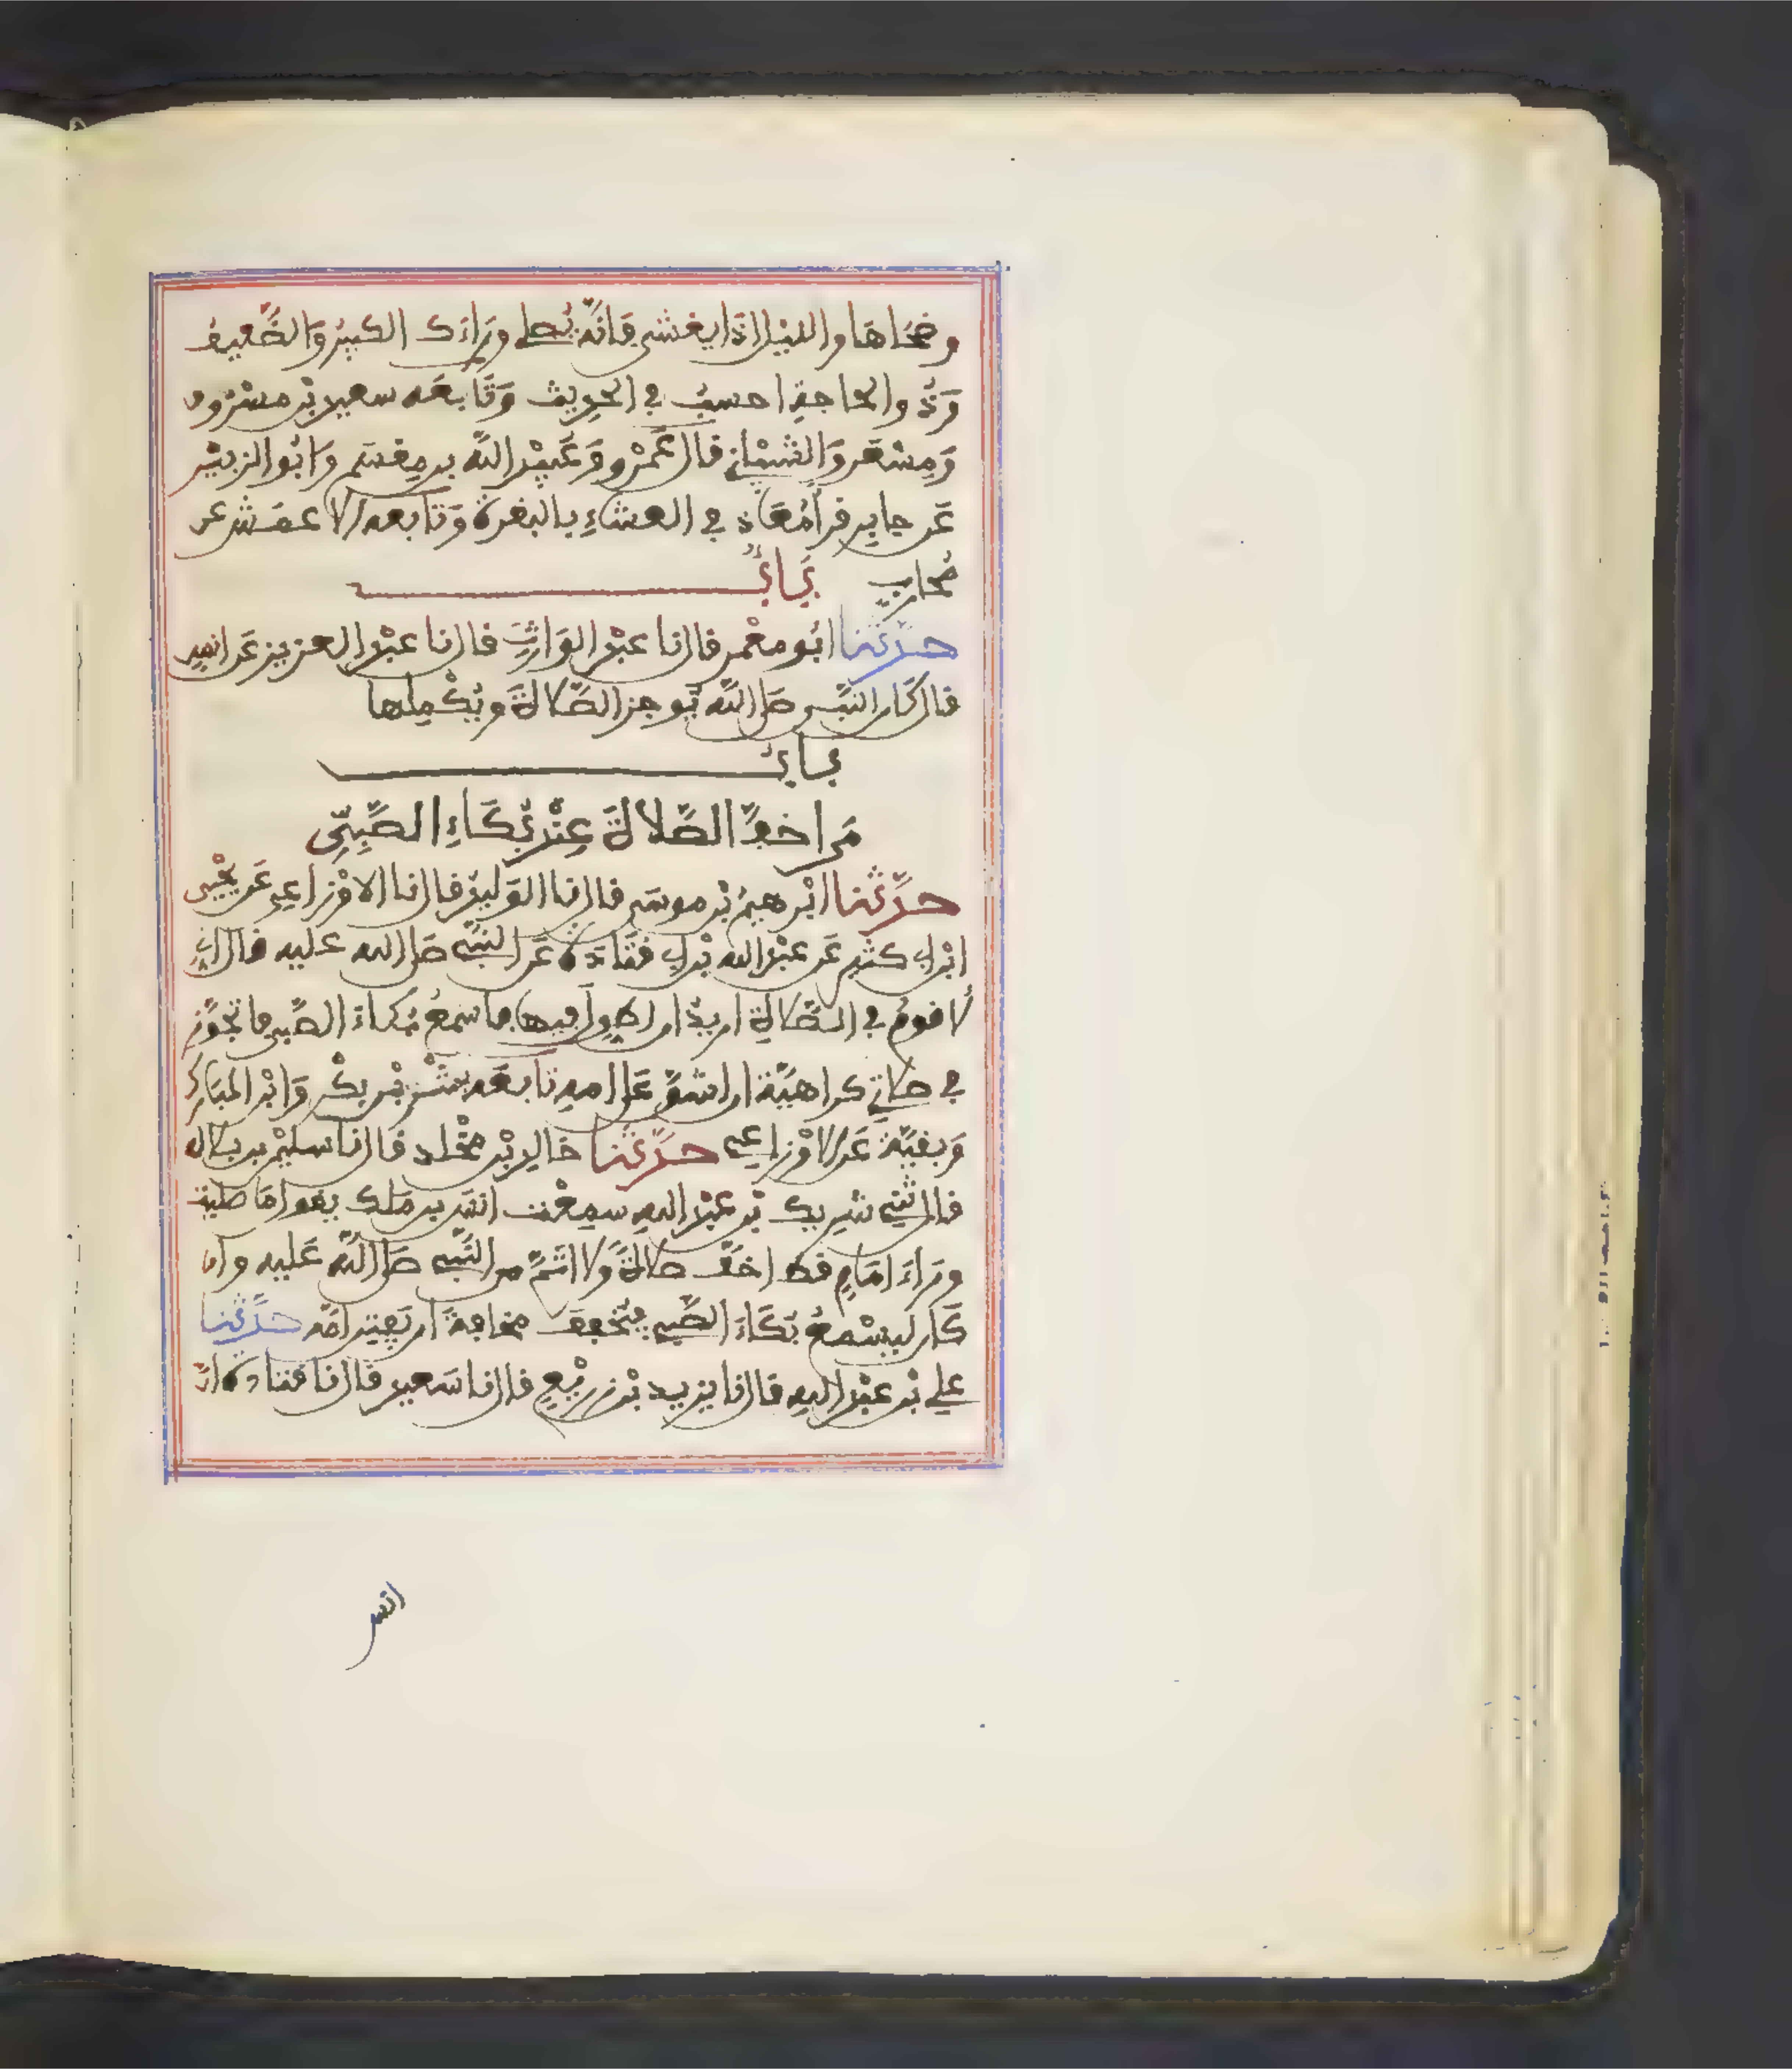 وضحاها والليل اذا يغشى فانه يصلي وراءك الكبير والضعيف
وذو الحاجة احسب في الحديث وتابعه سعيد بن مسروق
ومسعر والشيباني قال عمرو وعبيد الله بن مقسم وابو الزبير
عن جابر قرا معاذ في العشاء بالبقرة وتابعه الاعمش عن
محارب باب
حدثنا ابو معمر قال نا عبد الوارث قال نا عبد العزيز عن انس
قال كان النبي صلى الله يوجز الصلاة ويكملها
باب
من اخف الصلاة عند بكاء الصبي
حدثنا ابرهيم بن موسى قال نا الوليد قال نا الاوزاعي عن يحيى
ابن ابي كثير عن عبد الله بن ابي قتادة عن النبي صلى الله عليه قال اني
لاقوم في الصلاة اريد ان اطول فيها فاسمع بكاء الصبي فاتجوز
في صلاتي كراهية ان اشق على امه تابعه بشر بن بكر وابن المبارك
وبقية عن الاوزاعي حدثنا خالد بن مخلد قال نا سليمن بن بلال
قال ثني شريك بن عبد الله سمعت انس بن ملك يقول ما صليت
وراء امام قط اخف صلاة ولا اتم من النبي صلى الله عليه وان
كان ليسمع بكاء الصبي فيخفف مخافة ان يفتن امه حدثنا
علي بن عبد الله قال نا يزيد بن زريع قال نا سعيد قال نا قتادة ان
انس